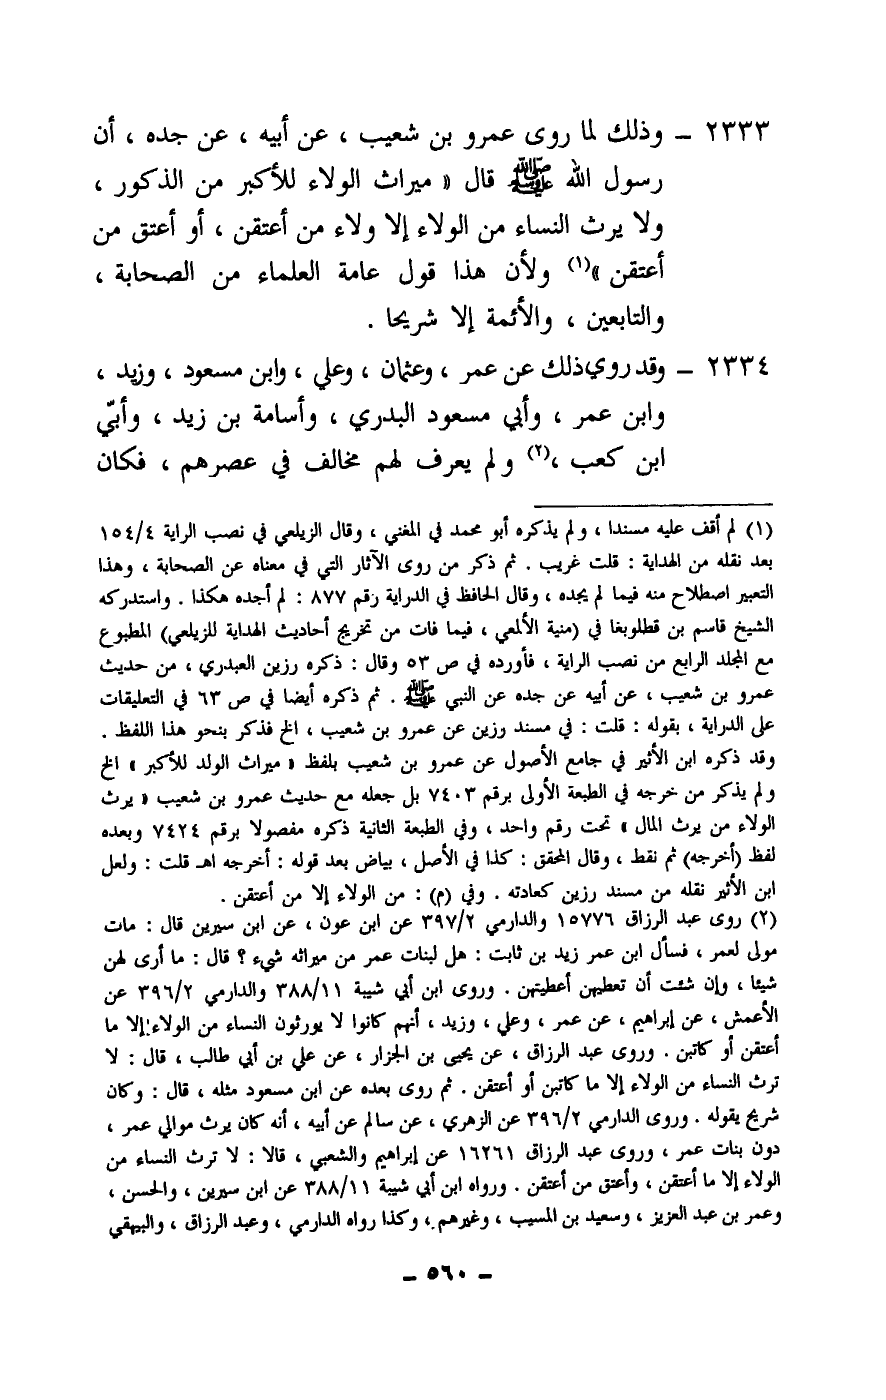 ٢٣٣٣ ـ وذلك لما روى عمرو بن شعيب ، عن أبيه ، عن جده ، أن
رسول الله ﷺ قال « ميراث الولاء للأكبر من الذكور ،
ولا يرث النساء من الولاء إلا ولاء من أعتقن ، أو أعتق من
أعتقن »(١) ولأن هذا قول عامة العلماء من الصحابة ،
والتابعين ، والأئمة إلا شريحا .
٢٣٣٤ ـ وقد روي ذلك عن عمر ، وعثمان ، وعلي ، وابن مسعود ، وزيد ،
وابن عمر ، وأبي مسعود البدري ، وأسامة بن زيد ، وأبيّ
ابن كعب ،(٢) ولم يعرف لهم مخالف في عصرهم ، فكان
(١) لم أقف عليه مسندا ، ولم يذكره أبو محمد في المغني ، وقال الزيلعي في نصب الراية ١٥٤/٤
بعد نقله من الهداية : قلت غريب . ثم ذكر من روى الآثار التي في معناه عن الصحابة ، وهذا
التعبير اصطلاح منه فيما لم يجده ، وقال الحافظ في الدراية رقم ٨٧٧ : لم أجده هكذا . واستدركه
الشيخ قاسم بن قطلوبغا في (منية الألمعي ، فيما فات من تخريج أحاديث الهداية للزيلعي) المطبوع
مع المجلد الرابع من نصب الراية ، فأورده في ص ٥٣ وقال : ذكره رزين العبدري ، من حديث
عمرو بن شعيب ، عن أبيه عن جده عن النبي ﷺ . ثم ذكره أيضا في ص ٦٣ في التعليقات
على الدراية ، بقوله : قلت : في مسند رزين عن عمرو بن شعيب ، الخ فذكر بنحو هذا اللفظ .
وقد ذكره ابن الأثير في جامع الأصول عن عمرو بن شعيب بلفظ « ميراث الولد للأكبر » الخ
ولم يذكر من خرجه في الطبعة الأولى برقم ٧٤٠٣ بل جعله مع حديث عمرو بن شعيب « يرث
الولاء من يرث المال » تحت رقم واحد ، وفي الطبعة الثانية ذكره مفصولا برقم ٧٤٢٤ وبعده
لفظ (أخرجه) ثم نقط ، وقال المحقق : كذا في الأصل ، بياض بعد قوله : أخرجه اهـ قلت : ولعل
ابن الأثير نقله من مسند رزين كعادته . وفي (م) : من الولاء إلا من أعتقن .
(٢) روى عبد الرزاق ١٥٧٧٦ والدارمي ٣٩٧/٢ عن ابن عون ، عن ابن سيرين قال : مات
مولى لعمر ، فسأل ابن عمر زيد بن ثابت : هل لبنات عمر من ميراثه شيء ؟ قال : ما أرى لهن
شيئا ، وإن شئت أن تعطيهن أعطيتهن . وروى ابن أبي شيبة ٣٨٨/١١ والدارمي ٣٩٦/٢ عن
الأعمش ، عن إبراهيم ، عن عمر ، وعلي ، وزيد ، أنهم كانوا لا يورثون النساء من الولاء إلا ما
أعتقن أو كاتبن . وروى عبد الرزاق ، عن يحيى بن الجزار ، عن علي بن أبي طالب ، قال : لا
ترث النساء من الولاء إلا ما كاتبن أو أعتقن . ثم روى بعده عن ابن مسعود مثله ، قال : وكان
شريح يقوله . وروى الدارمي ٣٩٦/٢ عن الزهري ، عن سالم عن أبيه ، أنه كان يرث موالي عمر ،
دون بنات عمر ، وروى عبد الرزاق ١٦٢٦١ عن إبراهيم والشعبي ، قالا : لا ترث النساء من
الولاء إلا ما أعتقن ، وأعتق من أعتقن . ورواه ابن أبي شيبة ٣٨٨/١١ عن ابن سيرين ، والحسن ،
وعمر بن عبد العزيز ، وسعيد بن المسيب ، وغيرهم ، وكذا رواه الدارمي ، وعبد الرزاق ، والبيهقي
ـ ٥٦٠ ـ